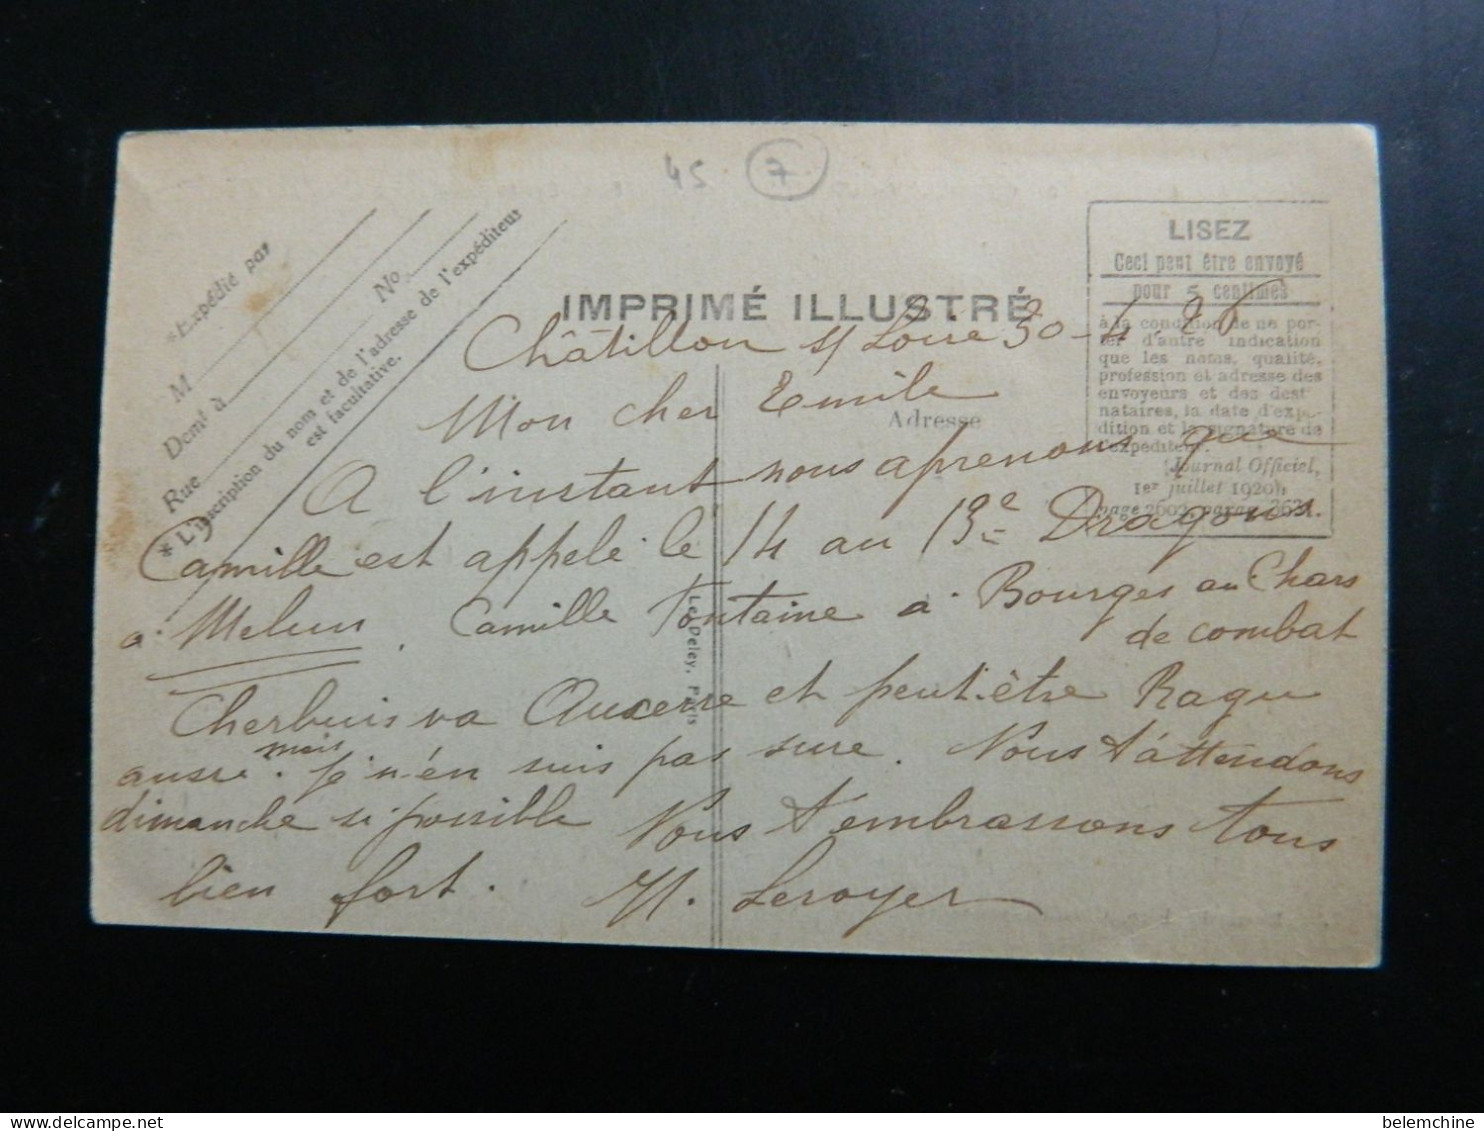 45 7
LISEZ
Ceci peut être envoyé
pour 5 centimes
à la condition de ne por-
ter d'autre indication
que les noms, qualité,
profession et adresse des
envoyeurs et des desti-
nataires, la date d'expé-
dition et la signature de
l'expéditeur.
(Journal Officiel,
1er juillet 1920)
page 2002, parag. 3631.
*Expédié par
M
No
Domt à
Rue
*L'inscription du nom et de l'adresse de l'expéditeur
est facultative.
IMPRIMÉ ILLUSTRÉ
Adresse
Le Deley, Paris
Châtillon s/ Loire 30-4-26
Mon cher Emile
A l'instant nous aprenons que
Camille est appelé le 14 au 13e Dragons
a Melun. Camille Fontaine a Bourges au Chars
de combat
Cherbuis va Auxerre et peut-être Ragu
aussi. mais je n'en suis pas sure. Nous t'attendons
dimanche si possible Nous t'embrassons tous
bien fort. M. Leroyer
belemchine